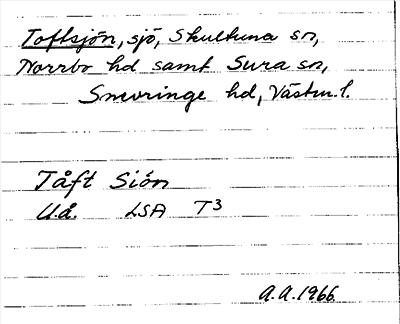 Toftsjön, sjö, Skultuna sn,
Norrbo hd samt Sura sn,
Snevringe hd, Västm.l.
Tåft Siön
U.å. LSA T3
A.A.1966